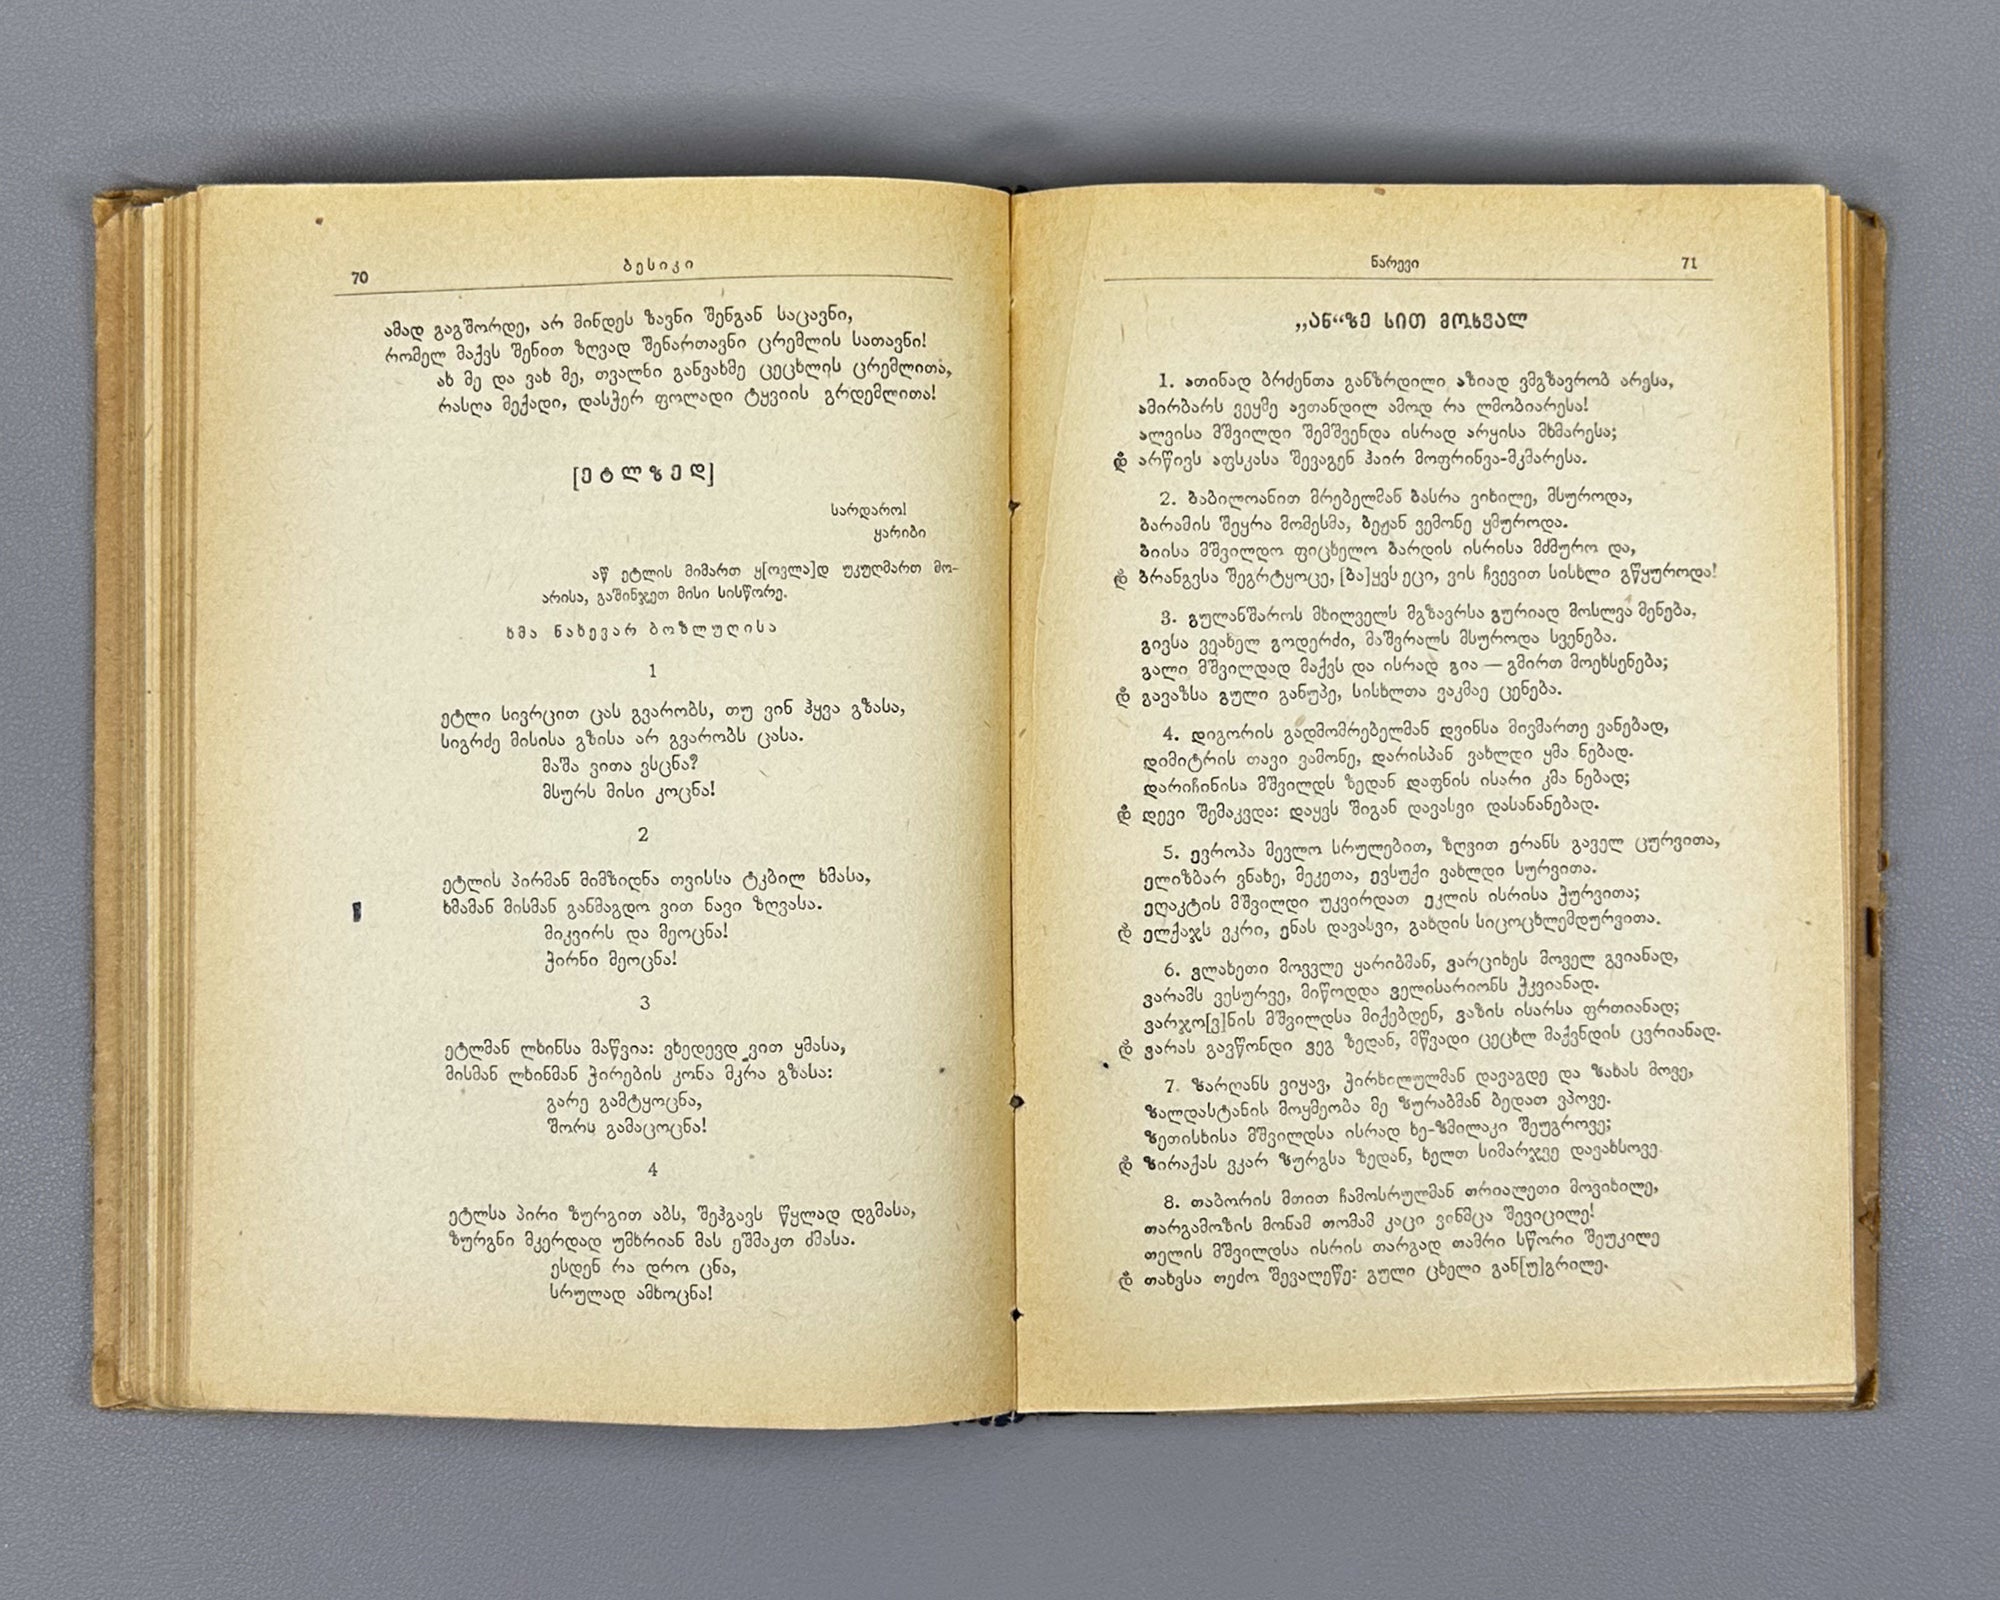 70
ბესიკი
ამად გაგშორდე, არ მინდეს ზავნი შენგან საცავნი,
რომელ მაქვს შენით ზღვად შენართავნი ცრემლის სათავნი!
ახ მე და ვახ მე, თვალნი განვახმე ცეცხლის ცრემლითა,
რასღა მექადი, დასჭერ ფოლადი ტყვიის გრდემლითა!
[ეტლზედ]
სარდარო!
ყარიბი
აწ ეტლის მიმართ ყ[ოვლა]დ უკუღმართ მო-
არისა, გაშინჯეთ მისი სისწორე.
ხმა ნახევარ ბოზლუღისა
1
ეტლი სივრცით ცას გვარობს, თუ ვინ ჰყვა გზასა,
სიგრძე მისისა გზისა არ გვარობს ცასა.
მაშა ვითა ვსცნა?
მსურს მისი კოცნა!
2
ეტლის პირმან მიმზიდნა თვისსა ტკბილ ხმასა,
ხმამან მისმან განმაგდო ვით ნავი ზღვასა.
მიკვირს და მეოცნა!
ჭირნი მეოცნა!
3
ეტლმან ლხინსა მაწვია: ვხედევდ ვით ყმასა,
მისმან ლხინმან ჭირების კონა მკრა გზასა:
გარე გამტყოცნა,
შორს გამაცოცნა!
4
ეტლსა პირი ზურგით აბს, შეჰგავს წყლად დგმასა,
ზურგნი მკერდად უმხრიან მას ეშმაკთ ძმასა.
ესდენ რა დრო ცნა,
სრულად ამხოცნა!
ნარევი
71
„ან“ზე სით მოხვალ
1. ათინად ბრძენთა განზრდილი აზიად ვმგზავრობ არესა,
ამირბარს ვეყმე ავთანდილ ამოდ რა ლმობიარესა!
ალვისა მშვილდი შემშვენდა ისრად არყისა მხმარესა;
დ არწივს აფსკასა შევაგენ ჰაირ მოფრინვა-მკმარესა.
2. ბაბილოანით მრებელმან ბასრა ვიხილე, მსუროდა,
ბარამის შეყრა მომესმა, ბეჟან ვემონე ყმუროდა.
ბიისა მშვილდო ფიცხელო ბარდის ისრისა მძმურო და,
დ ბრანგვსა შეგრტყოცე, [ბა]ყვს ეცი, ვის ჩვევით სისხლი გწყუროდა!
3. გულანშაროს მხილველს მგზავრსა გურიად მოსლვა მენება,
გივსა ვეახელ გოდერძი, მაშვრალს მსუროდა სვენება.
გალი მშვილდად მაქვს და ისრად გია — გმირთ მოეხსენება;
დ გავაზსა გული განუპე, სისხლთა ვაკმაე ცენება.
4. დიგორის გადმომრებელმან დვინსა მივმართე ვანებად,
დიმიტრის თავი ვამონე, დარისპან ვახლდი ყმა ნებად.
დარიჩინისა მშვილდს ზედან დაფნის ისარი კმა ნებად;
დ დევი შემაკვდა: დაყვს შიგან დავასვი დასანანებად.
5. ევროპა მევლო სრულებით, ზღვით ერანს გაველ ცურვითა,
ელიზბარ ვნახე, მეკეთა, ევსუქი ვახლდი სურვითა.
ეღაკტის მშვილდი უკვირდათ ეკლის ისრისა ჭურვითა;
დ ელქაჯს ვკრი, ენას დავასვი, გახდის სიცოცხლემდურვითა.
6. ვლახეთი მოვვლე ყარიბმან, ვარციხეს მოველ გვიანად,
ვარამს ვესურვე, მიწოდდა ველისარიონს ჭკვიანად.
ვარჯო[ვ]ნის მშვილდსა მიქებდენ, ვაზის ისარსა ფრთიანად;
დ ვარას გავწონდი ვეგ ზედან, მწვადი ცეცხლ მაქვნდის ცვრიანად.
7. ზარღანს ვიყავ, ჭირხილულმან დავაგდე და ზახას მოვე,
ზალდასტანის მოყმეობა მე ზურაბმან ბედათ ვპოვე.
ზეთისხისა მშვილდსა ისრად ხე-ზმილაკი შეუგროვე;
დ ზირაქას ვკარ ზურგსა ზედან, ხელთ სიმარჯვე დავახსოვე.
8. თაბორის მთით ჩამოსრულმან თრიალეთი მოვიხილე,
თარგამოზის მონამ თომამ კაცი ვინმცა შევიცილე!
თელის მშვილდსა ისრის თარგად თამრი სწორი შეუკილე
დ თახვსა თეძო შევალეწე: გული ცხელი გან[უ]გრილე.